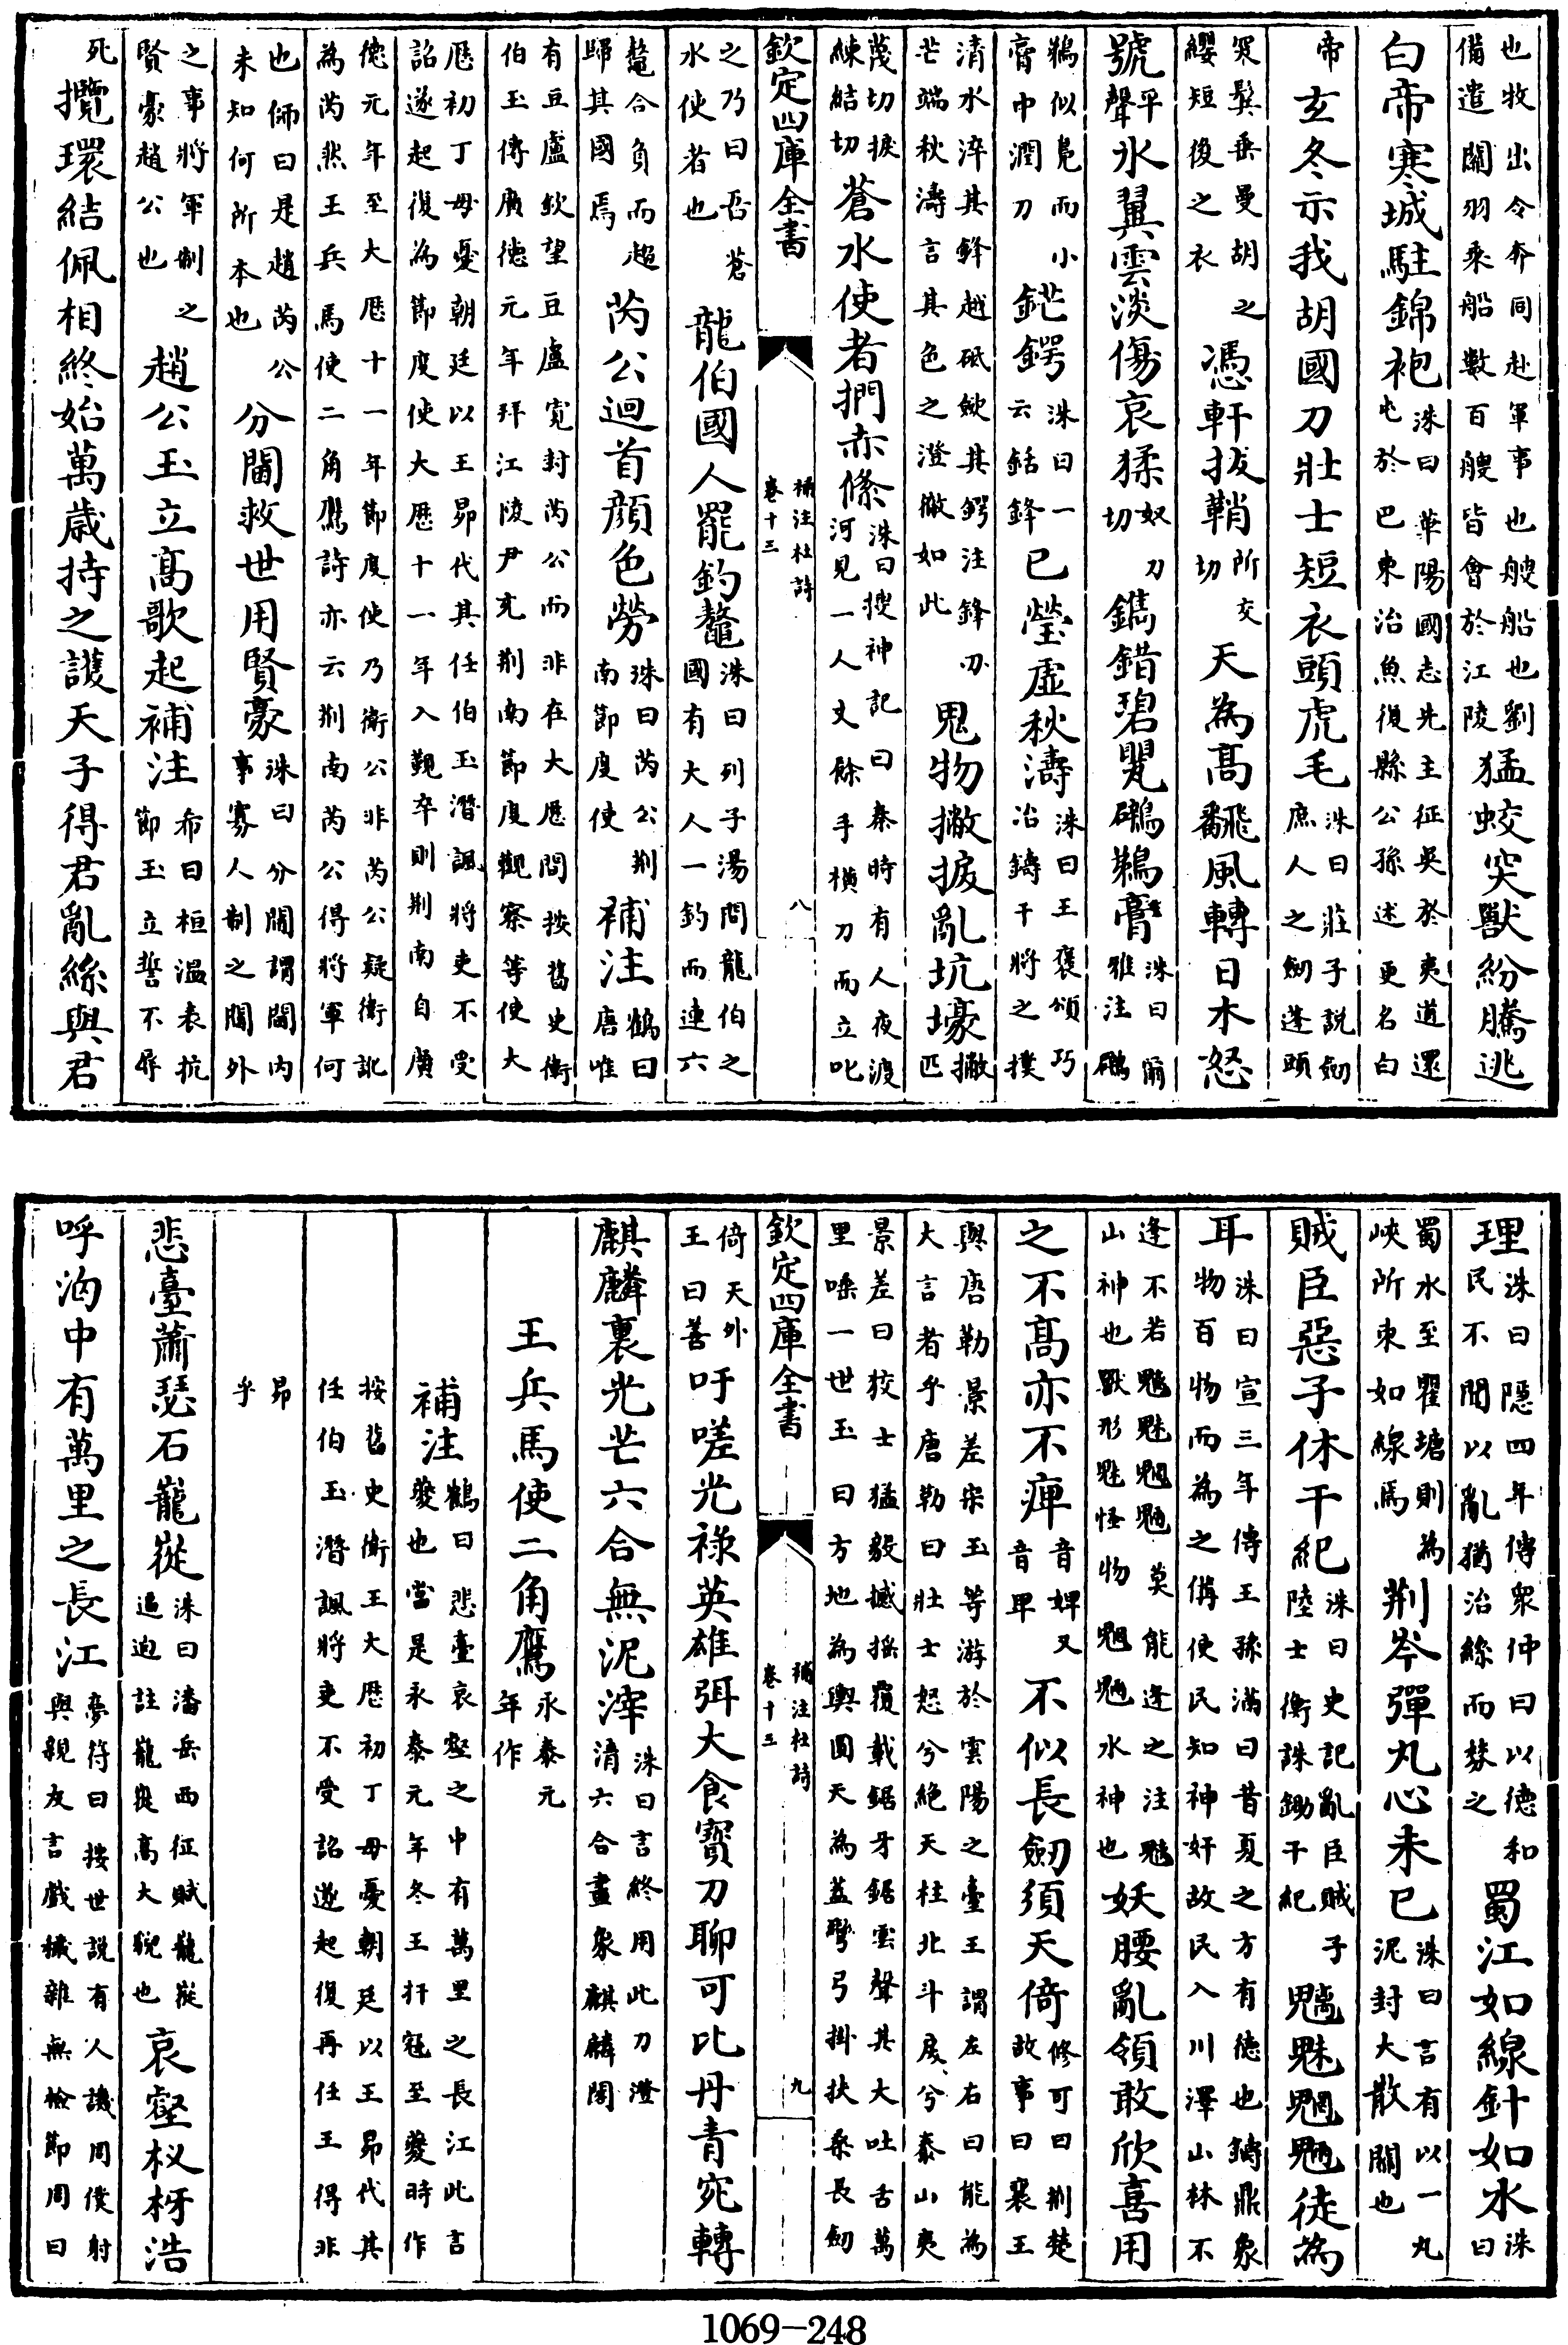 也牧出令奔同赴軍事也艘船也劉備遣關羽乘船數百艘皆會於江陵猛蛟突獸紛騰逃
白帝寒城駐錦袍洙曰華陽國志先主征吳於夷道還屯於巴東治魚復縣公孫述更名白
帝玄冬示我胡國刀壯士短衣頭虎毛洙曰莊子說劒庶人之劒蓬頭
突鬢垂曼胡之纓短後之衣憑軒拔鞘所交切天為髙翻風轉日木怒
號平聲冰翼雲淡傷哀猱奴刀切鐫錯碧甖鸊鵜膏洙曰爾雅注鸊
鵜似鳧而小膏中潤刀鋩鍔洙曰一云銛鋒已瑩虛秋濤洙曰王褒頌巧冶鑄干將之樸
清水淬其鋒越砥歛其鍔注鋒刃芒端秋濤言其色之澄徹如此鬼物撇捩亂坑壕撇匹
蔑切捩練結切蒼水使者捫赤絛洙曰搜神記曰秦時有人夜渡河見一人丈餘手橫刀而立叱
欽定四庫全書 補注杜詩 卷十三 八
之乃曰吾蒼水使者也龍伯國人罷釣鼇洙曰列子湯問龍伯之國有大人一釣而連六
鼇合負而趨歸其國焉芮公迴首顔色勞洙曰芮公荆南節度使補注鶴曰唐惟
有豆盧欽望豆盧寛封芮公而非在大厯間按舊史衛伯玉傳廣德元年拜江陵尹充荆南節度觀察等使大
厯初丁母憂朝廷以王昂代其任伯玉潛諷將吏不受詔遂起復為節度使大厯十一年入覲卒則荆南自廣
德元年至大厯十一年節度使乃衛公非芮公疑衛訛為芮然王兵馬使二角鷹詩亦云荆南芮公得將軍何
也師曰是趙芮公未知何所本也分閫救世用賢豪洙曰分閫謂閫内事寡人制之閫外
之事將軍制之賢豪趙公也趙公玉立髙歌起補注希曰桓温表抗節玉立誓不辱
死攬環結佩相終始萬歲持之䕶天子得君亂絲與君
理洙曰隱四年傳衆仲曰以德和民不聞以亂猶治絲而棼之蜀江如線針如水洙曰
蜀水至瞿塘則為峽所束如線焉荆岑彈丸心未已洙曰言有以一丸泥封大散關也
賊臣惡子休干紀洙曰史記亂臣賊子陸士衡誅鋤干紀魑魅魍魎徒為
耳洙曰宣三年傳王孫滿曰昔夏之方有德也鑄鼎象物百物而為之備使民知神奸故民入川澤山林不
逢不若魑魅魍魎莫能逢之注魑山神也獸形魅怪物魍魎水神也妖腰亂領敢欣喜用
之不髙亦不庳音婢又音卑不似長劒須天倚修可曰荆楚故事曰襄王
與唐勒景差宋玉等游於雲陽之臺王謂左右曰能為大言者乎唐勒曰壯士怒兮絶天柱北斗戾兮泰山夷
景差曰狡士猛毅撼搖覆載鋸牙鋸雲聲其大吐舌萬里唾一世玉曰方地為輿圓天為蓋彎弓掛扶桑長劒
欽定四庫全書 補注杜詩 卷十三 九
倚天外王曰善吁嗟光祿英雄弭大食寳刀聊可比丹青宛轉
麒麟裏光芒六合無泥滓洙曰言終用此刀澄清六合畫象麒麟閣
王兵馬使二角鷹永泰元年作
補注鶴曰悲臺哀壑之中有萬里之長江此言夔也當是永泰元年冬王扞冦至夔時作
按舊史衛王大厯初丁母憂朝廷以王昂代其任伯玉潛諷將吏不受詔遂起復再任王得非
昂乎
悲臺蕭瑟石巃嵸洙曰潘岳西征賦巃嵸逼迫註巃嵸髙大貌也哀壑杈枒浩
呼洶中有萬里之長江夢符曰按世說有人譏周僕射與親友言戲穢雜無檢節周曰
1069-248